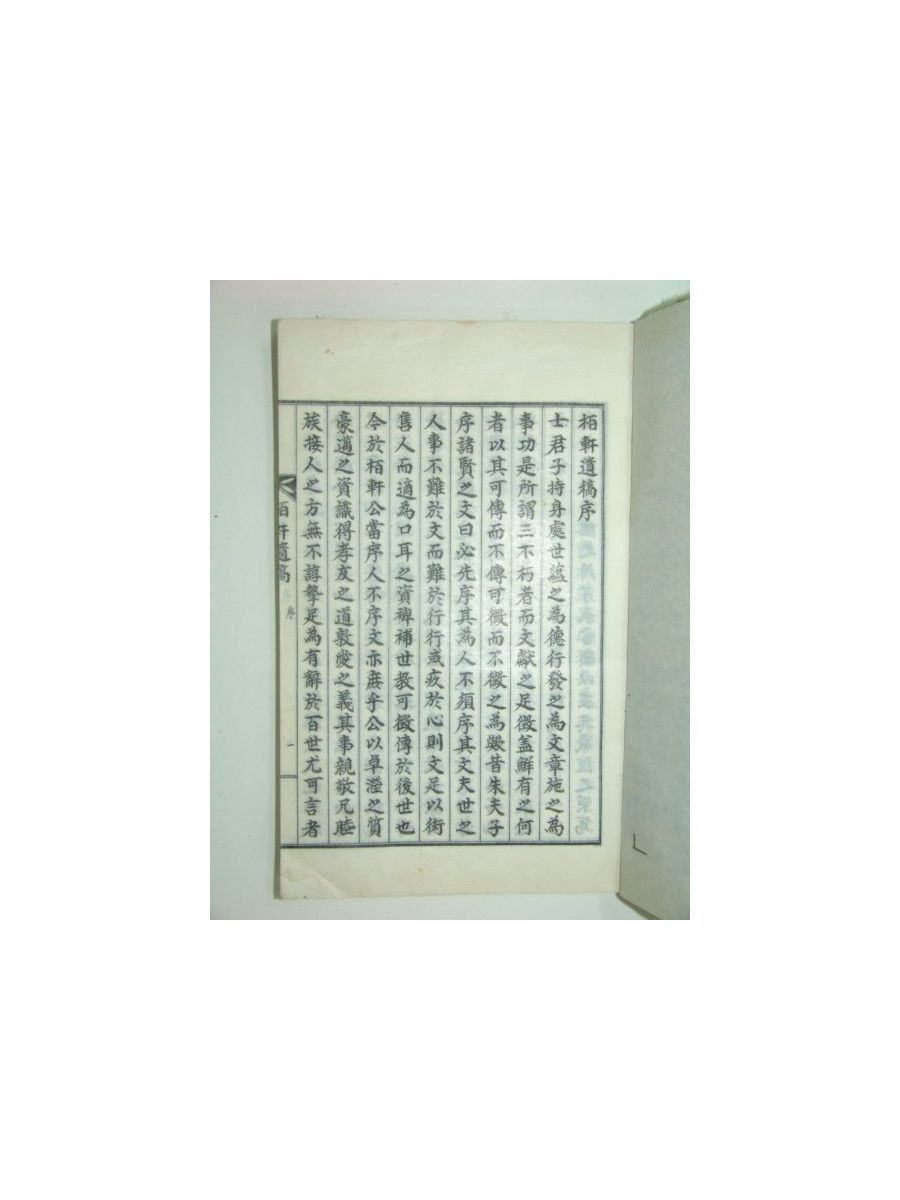 栢軒遺稿序
士君子持身處世蘊之為德行發之為文章施之為
事功是所謂三不朽者而文獻之足徵盖鮮有之何
者以其可傳而不傳可徵而不徵之為歟昔朱夫子
序諸賢之文曰必先序其為人不須序其文夫世之
人事不難於文而難於行行或疚於心則文足以衒
售人而適為口耳之資裨補世敎可徵傳於後世也
今於栢軒公當序人不序文亦庶乎公以卓犖之質
豪邁之資識得孝友之道敦愛之義其事親敬兄睦
族接人之方無不諄摯足為有辭於百世尤可言者
栢軒遺稿 序 一